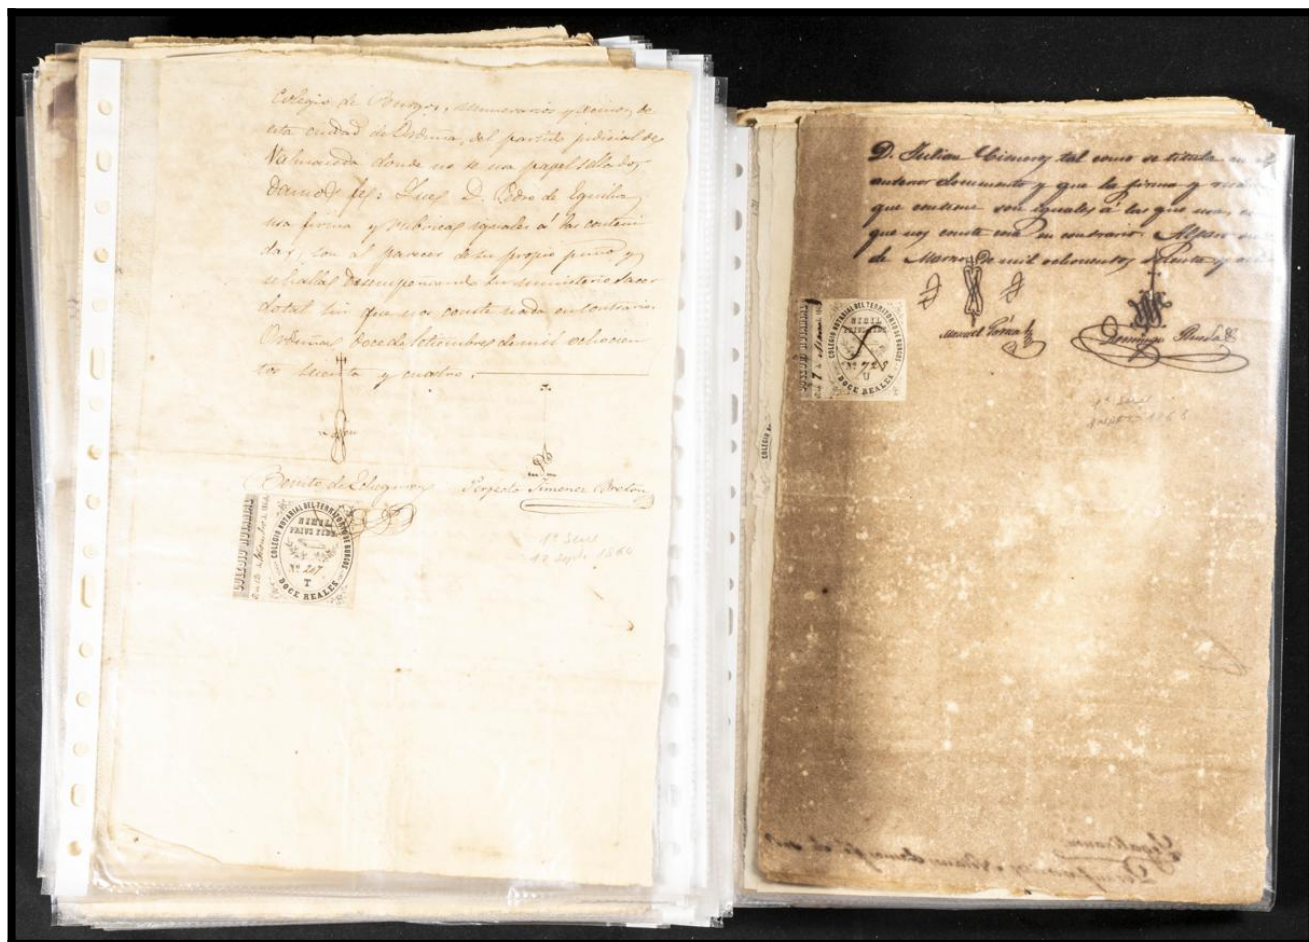 Colegio de Burgos, numerarios y vecinos de
esta ciudad de Orduña, del partido judicial de
Valmaseda donde no se usa papel sellado,
damos fe: Que D. Pedro de
una firma y rúbricas iguales á las conteni
das, son al parecer de su propio puño y
se halla desempeñando su ministerio sacer
dotal sin que nos conste nada en contrario.
Orduña doce de setiembre de mil ochocien
tos sesenta y cuatro.
Benito de
Perfecto Jimenez Breton
COLEGIO NOTARIAL
COLEGIO NOTARIAL DEL TERRITORIO DE BURGOS
NIHIL
PRIUS FIDE
Nº 207
T
DOCE REALES
1ª Serie
12 Septe 1864
D. Julian Cisneros tal como se titula en el
anterior documento y que la firma y
que contiene son iguales á las que usa,
que nos conste cosa en contrario.
de Marzo de mil ochocientos sesenta y
Manuel
Domingo
COLEGIO NOTARIAL DEL TERRITORIO DE BURGOS
NIHIL
PRIUS FIDE
Nº 728
U
DOCE REALES
1ª Serie
COLEGIO